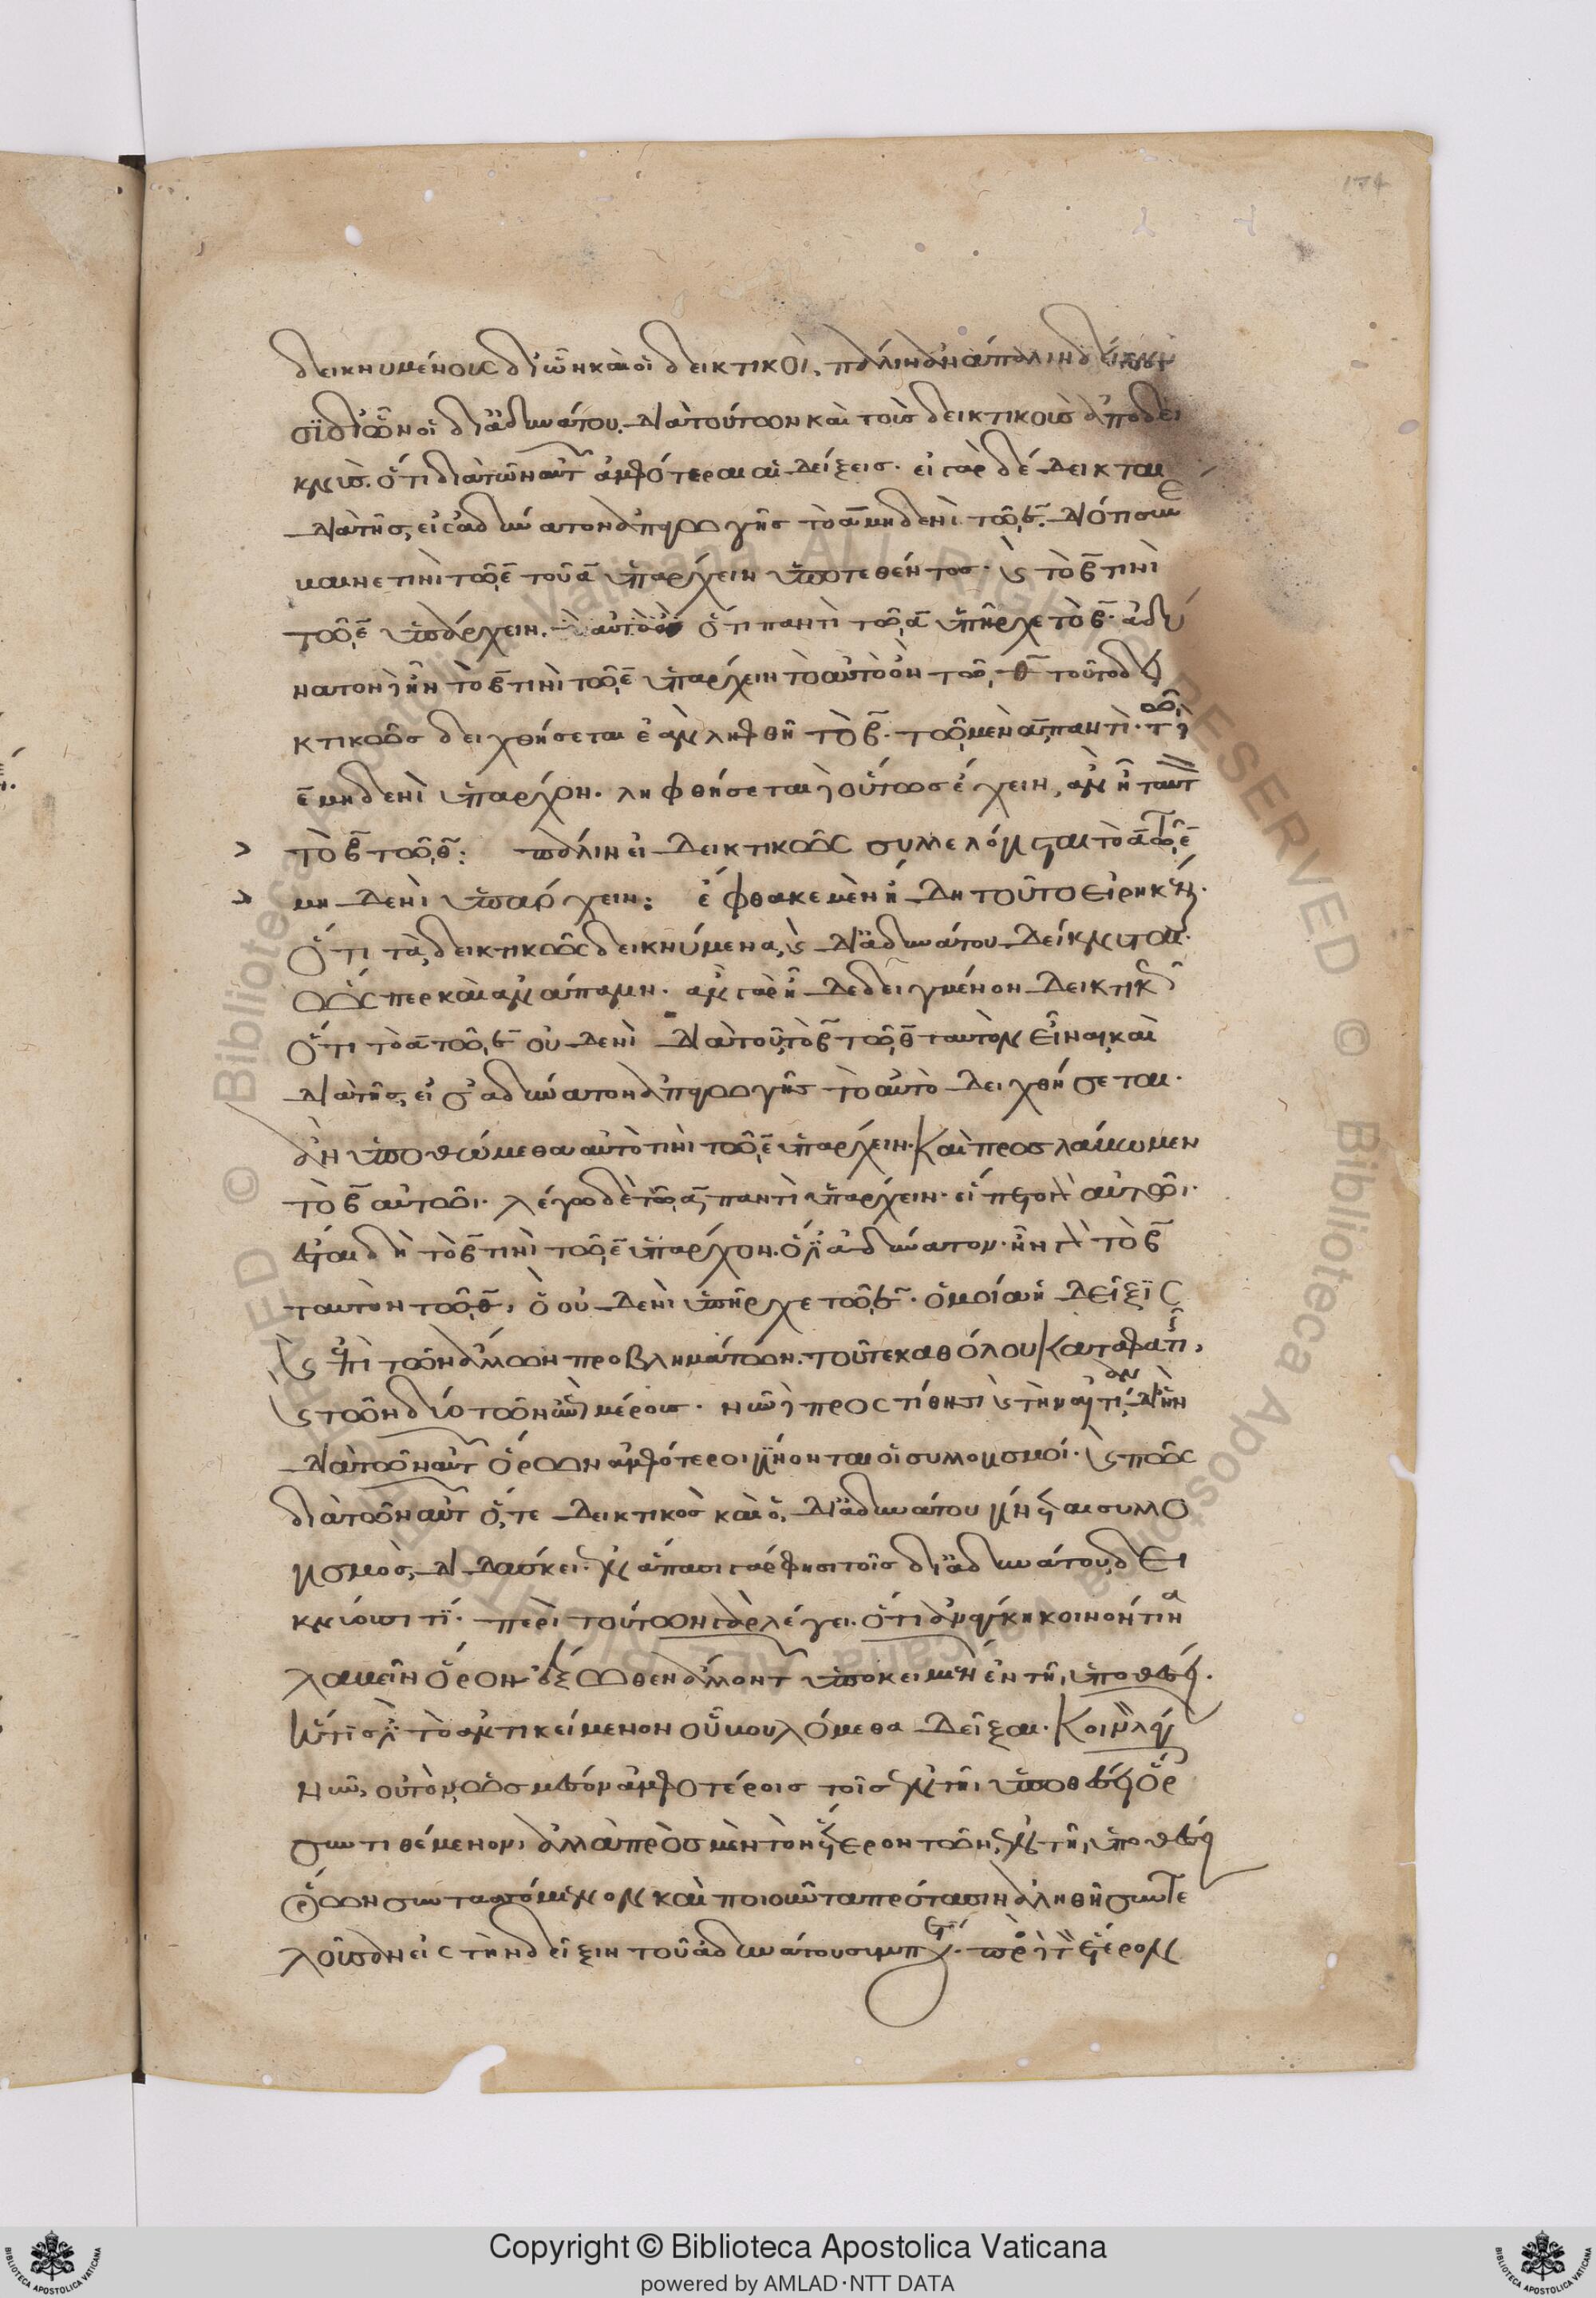 174
δεικνυμένους δι' ὧν καὶ οἱ δεικτικοί. πάλιν ἀνάπαλιν δείκνυ
σι δι' ὧν οἱ δι' ἀδυνάτου. διὰ τούτων καὶ τοῖς δεικτικοῖς ἀποδει
κνὺς. ὅτι διὰ τῶν αὐτ ἀμφότεραι αἱ δείξεις. εἰ γὰρ δέδεικται
διὰ τῆς εἰς ἀδύνατον ἀπαγωγῆς τὸ α μηδενὶ τῶι ε. διότι συνέ
βαινε τινὶ τῶι ε τοῦ α ὑπάρχειν ὑποτεθέντος. καὶ τὸ β τινὶ
τῶι ε ὑπάρχειν. ὅτι παντὶ τῶι α ὑπῆρχε τὸ β. ἀδύ
νατον δὲ ἦν τὸ β τινὶ τῶι ε ὑπάρχειν τὸ αὐτὸ ὂν τῶι θ τοῦτο δει
κτικῶς δειχθήσεται ἐὰν ληφθῆ τὸ β. τῶι μὲν α παντὶ. τῶι δὲ
ε μηδενὶ ὑπάρχον. ληφθήσεται δὲ οὕτως ἔχειν, ἂν ἦ ταυτ
τὸ β τῶι θ: πάλιν εἰ δεικτικῶς συλλελόγισται τὸ α τῶι ε
μηδενὶ ὑπάρχειν: ἔφθακε μὲν ἤδη τοῦτο εἰρηκέναι.
ὅτι τὰ δεικτικῶς δεικνύμενα, καὶ δι' ἀδυνάτου δείκνυται.
ὥσπερ καὶ ἀνάπαλιν. ἂν γὰρ ἦ δεδειγμένον δεικτικῶς
ὅτι τὸ α τῶι ε οὐδενὶ διὰ τοῦ τὸ β τῶι θ ταυτὸν εἶναι, καὶ
διὰ τῆς εἰς ἀδύνατον ἀπαγωγῆς τὸ αὐτὸ δειχθήσεται.
ἂν ὑποθώμεθα αὐτὸ τινὶ τῶι ε ὑπάρχειν. καὶ προσλάβωμεν
τὸ β αὐτῶι. λέγω δὲ τῶι α, παντὶ ὑπάρχειν. εἵπετο αὐτῶι.
ἔσται δὴ τὸ β τινὶ τῶι ε ὑπάρχον. ὅπερ ἀδύνατον. ἦν γὰρ τὸ β
ταυτὸν τῶι θ, ὃ οὐδενὶ ὑπῆρχε τῶι ε. ὁμοία ἡ δεῖξις
καὶ ἐπὶ τῶν ἄλλων προβλημάτων. τοῦ τε καθόλου καταφατι,
καὶ τῶν δύο τῶν ἐπὶ μέρους. νῦν δὲ προστίθησι καὶ τὴν αἰτίαν δι' ἣν
διὰ τῶν αὐτ ὅρων ἀμφότεροι γίνονται οἱ συλλογισμοί. καὶ πῶς
διὰ τῶν αὐτ ὅ τε δεικτικὸς καὶ ὁ δι' ἀδυνάτου γίνεται συλλο
γισμὸς, διδάσκει. ἐν ἅπασι γάρ φησι τοῖς δι' ἀδυνάτου δει
κνύουσί τι. περὶ τούτων γὰρ λέγει. ὅτι ἀνάγκη κοινόν τινα
λαβεῖν ὅρον. ἔξωθεν ἄλλον τ ὑποκειμέν ἐν τῆι ὑποθέσει.
ἥτις ἐστὶ τὸ ἀντικείμενον οὗ βουλόμεθα δεῖξαι. κοινὸν λέγει
νῦν, οὐ τὸν, ὡς μέσον ἀμφοτέροις τοῖς ἐν τῆι ὑποθέσει ὅροις
συντιθέμενον, ἀλλὰ πρὸς μὲν τὸν ἕτερον τῶν ἐν τῆι ὑποθέσει
ὅρων συνταττόμενον καὶ ποιοῦντα πρότασιν ἀληθῆ συντε
λοῦσαν εἰς τὴν δεῖξιν τοῦ ἀδυνάτου συμπ. πρὸς δὲ τὸν ἕτερον